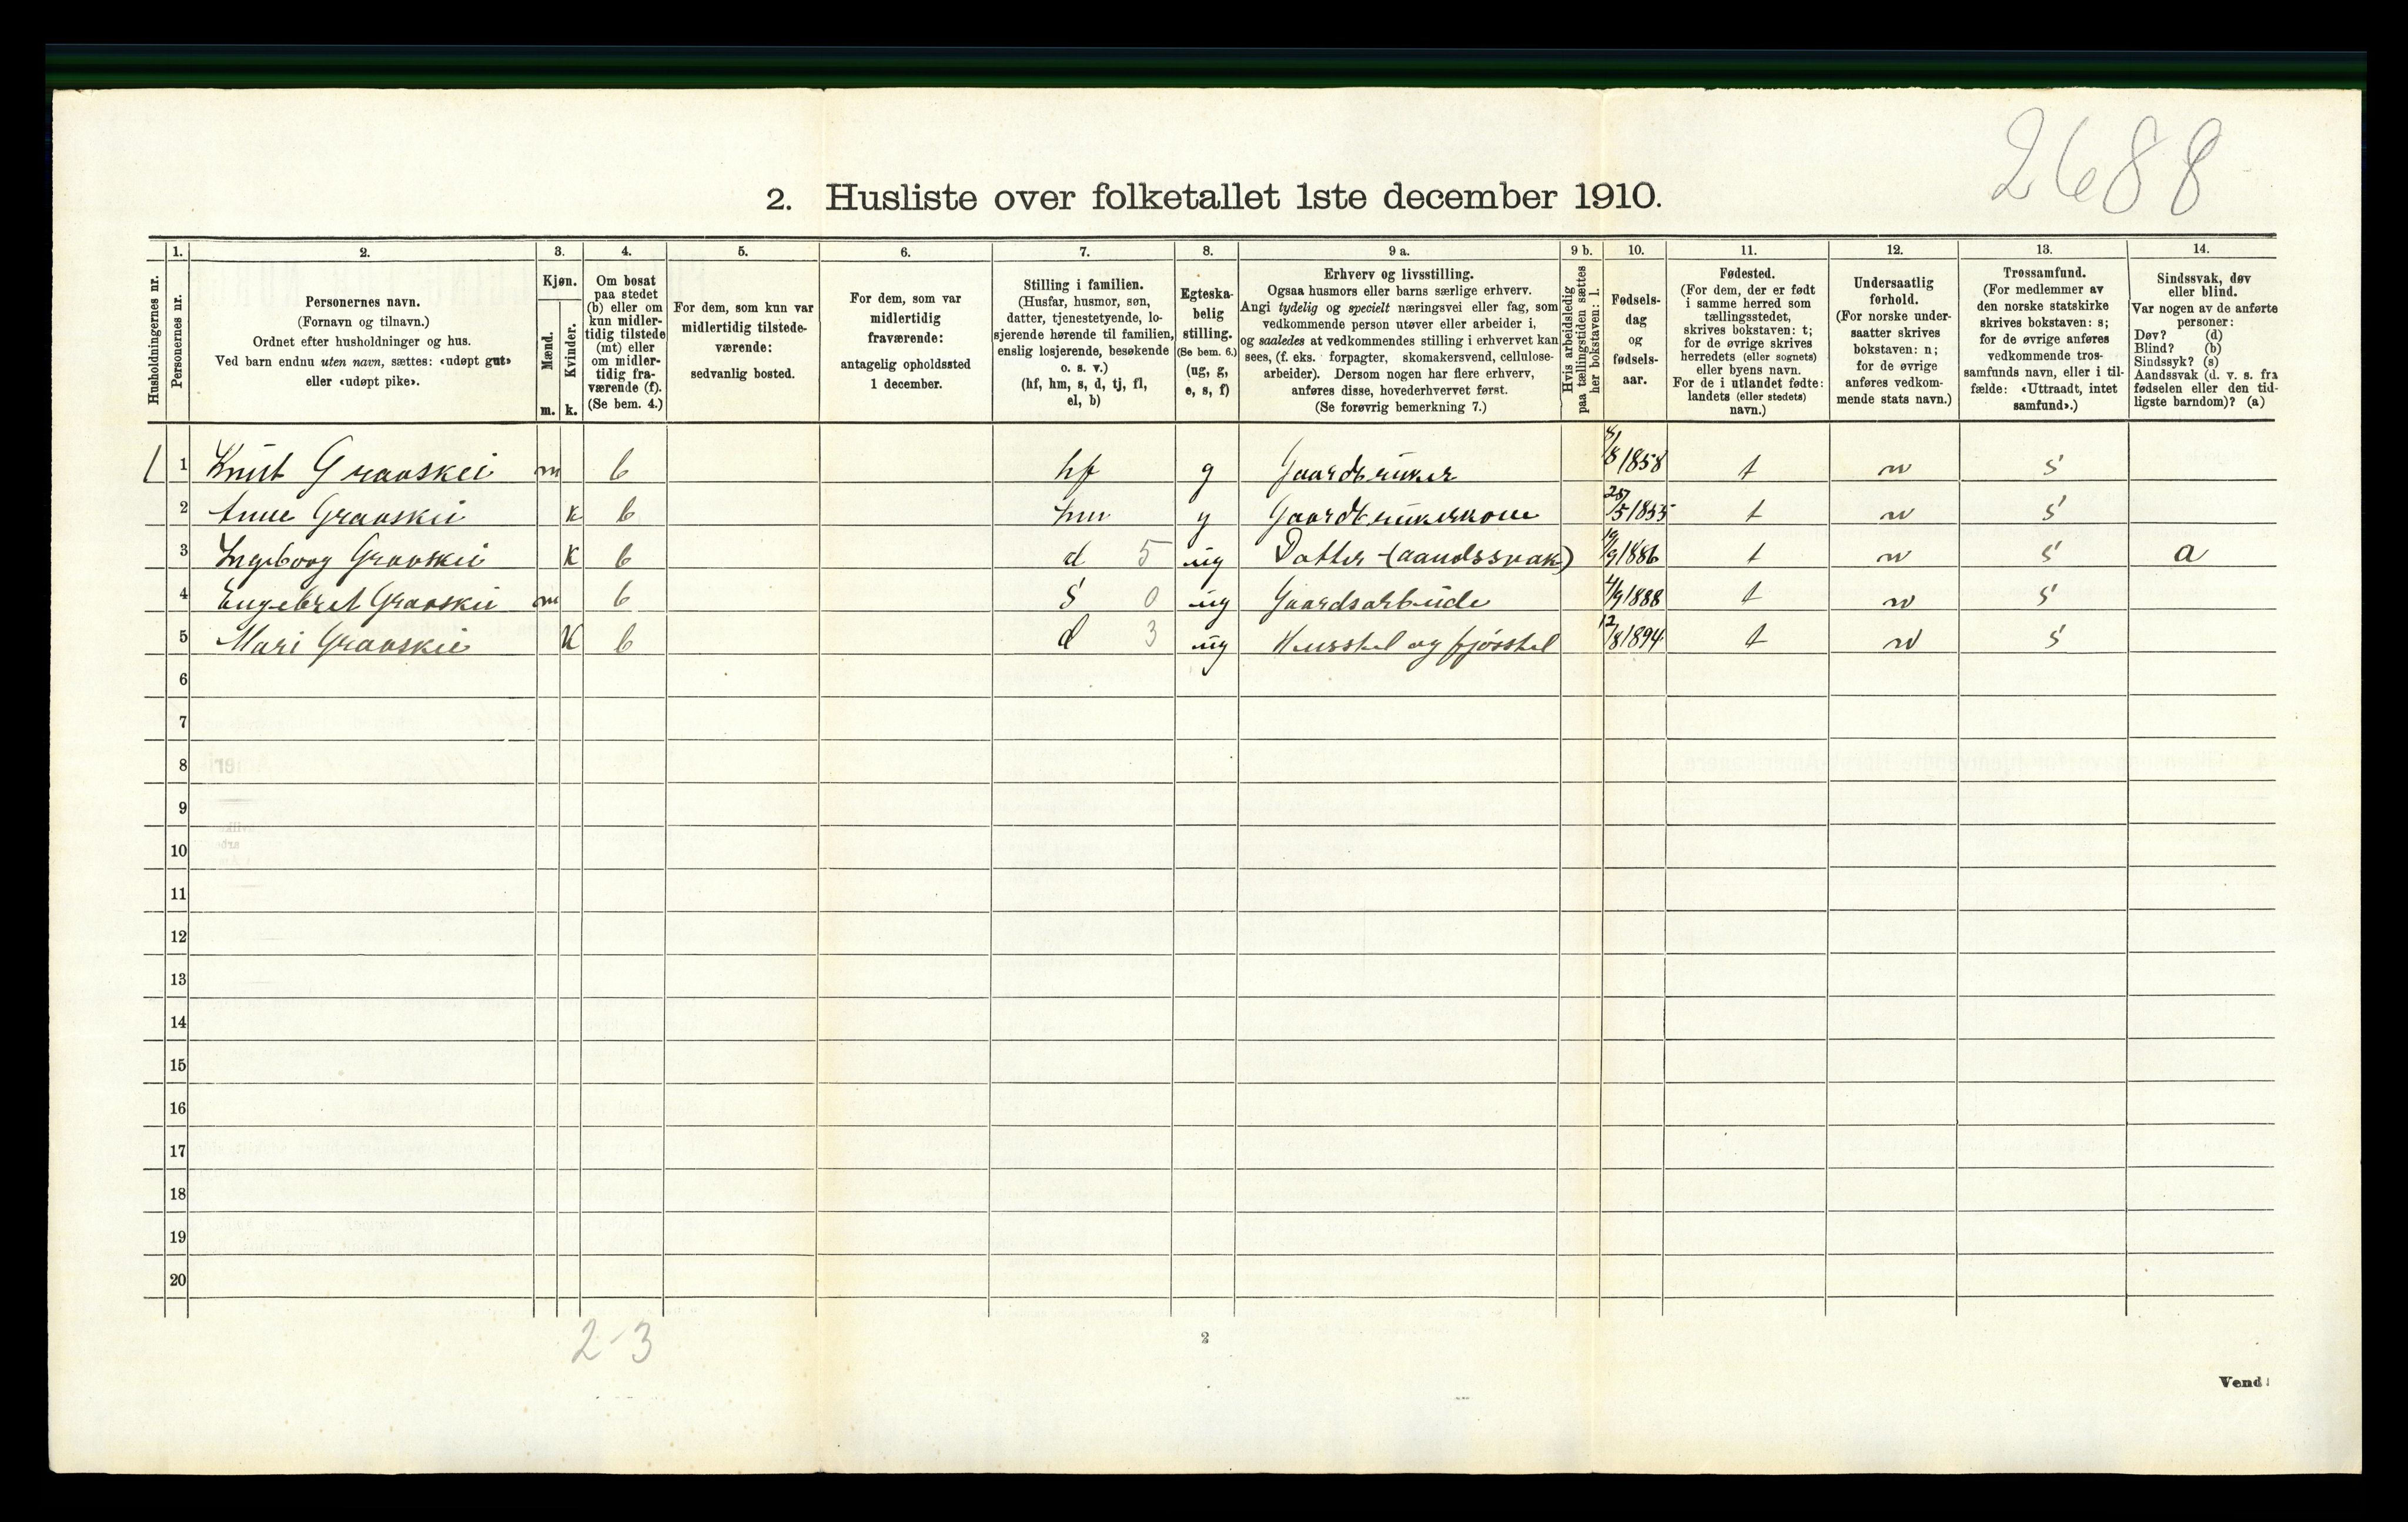 2688
2. Husliste over folketallet 1ste december 1910.
Husholdningernes nr.
1. Personernes nr.
2. Personernes navn.
(Fornavn og tilnavn.)
Ordnet efter husholdninger og hus.
Ved barn endnu uten navn, sættes: «udøpt gut»
eller «udøpt pike».
3. Kjøn.
Mænd. m.
Kvinder. k.
4. Om bosat
paa stedet
(b) eller om
kun midler-
tidig tilstede
(mt) eller
om midler-
tidig fra-
værende (f).
(Se bem. 4.)
5. For dem, som kun var
midlertidig tilstede-
værende:
sedvanlig bosted.
6. For dem, som var
midlertidig
fraværende:
antagelig opholdssted
1 december.
7. Stilling i familien.
(Husfar, husmor, søn,
datter, tjenestetyende, lo-
sjerende hørende til familien,
enslig losjerende, besøkende
o. s. v.)
(hf, hm, s, d, tj, fl,
el, b)
8. Egteska-
belig
stilling.
(Se bem. 6.)
(ug, g,
e, s, f)
9 a. Erhverv og livsstilling.
Ogsaa husmors eller barns særlige erhverv.
Angi tydelig og specielt næringsvei eller fag, som
vedkommende person utøver eller arbeider i,
og saaledes at vedkommendes stilling i erhvervet kan
sees, (f. eks. forpagter, skomakersvend, cellulose-
arbeider). Dersom nogen har flere erhverv,
anføres disse, hovederhvervet først.
(Se forøvrig bemerkning 7.)
9 b. Hvis arbeidsledig
paa tællingstiden sættes
her bokstaven: l.
10. Fødsels-
dag
og
fødsels-
aar.
11. Fødested.
(For dem, der er født
i samme herred som
tællingsstedet,
skrives bokstaven: t;
for de øvrige skrives
herredets (eller sognets)
eller byens navn.
For de i utlandet fødte:
landets (eller stedets)
navn.)
12. Undersaatlig
forhold.
(For norske under-
saatter skrives
bokstaven: n;
for de øvrige
anføres vedkom-
mende stats navn.)
13. Trossamfund.
(For medlemmer av
den norske statskirke
skrives bokstaven: s;
for de øvrige anføres
vedkommende tros-
samfunds navn, eller i til-
fælde: «Uttraadt, intet
samfund».)
14. Sindssvak, døv
eller blind.
Var nogen av de anførte
personer:
Døv? (d)
Blind? (b)
Sindssyk? (s)
Aandssvak (d. v. s. fra
fødselen eller den tid-
ligste barndom)? (a)
1 1 Knut Graaskei m b hf g Gaardbruker 8/8 1858 t n s
2 Anne Graaskei k b hm g Gaardbrukerkone 25/5 1855 t n s
3 Ingeborg Graaskei k b d 5 ug Datter (aandssvak) 19/9 1886 t n s a
4 Engebret Graaskei m b s 0 ug Gaardsarbeide 4/9 1888 t n s
5 Mari Graaskei k b d 3 ug Husstel og fjøsstel 12/8 1894 t n s
6
7
8
9
10
11
12
13
14
15
16
17
18
19
20
2-3
2
Vend!